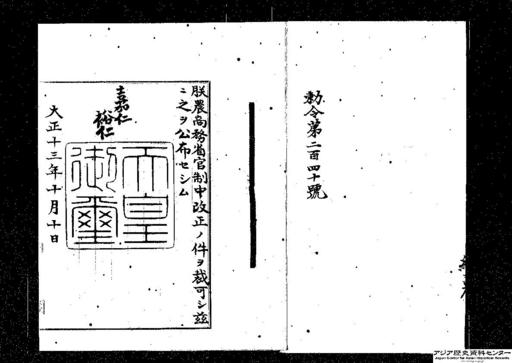 勅令第二百四十號
朕農商務省官制中改正ノ件ヲ裁可シ茲
ニ之ヲ公布セシム
嘉仁
裕仁
天皇御璽
大正十三年十月十日
アジア歴史資料センター
Japan Center for Asian Historical Records